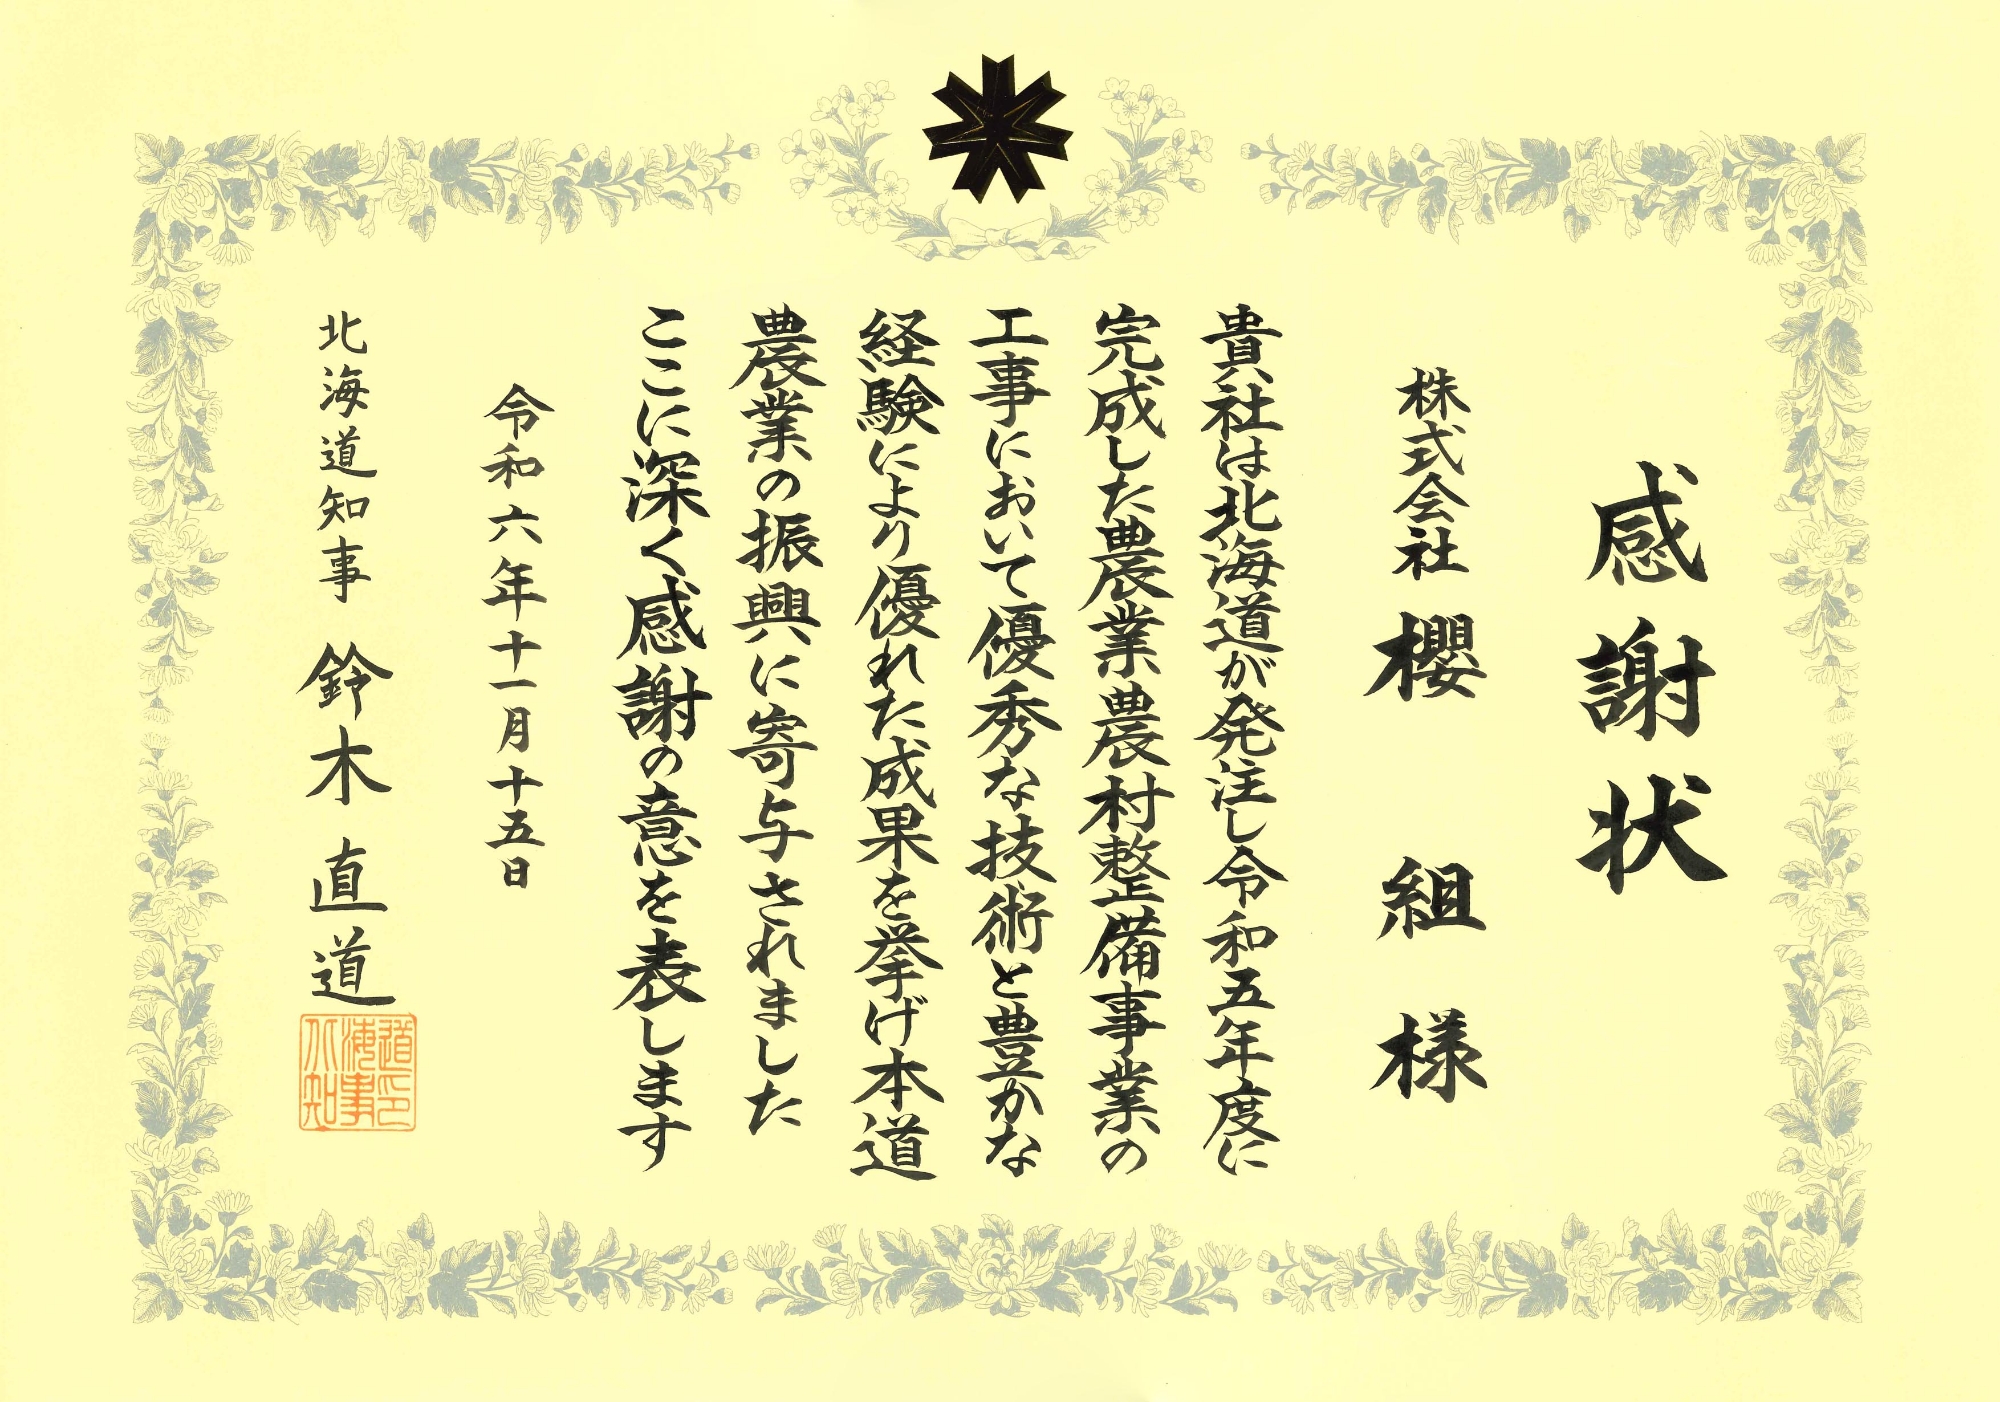 感謝状
株式会社 櫻組 様
貴社は北海道が発注し令和五年度に
完成した農業農村整備事業の
工事において優秀な技術と豊かな
経験により優れた成果を挙げ本道
農業の振興に寄与されました
ここに深く感謝の意を表します
令和六年十一月十五日
北海道知事 鈴木直道
北海道知事印